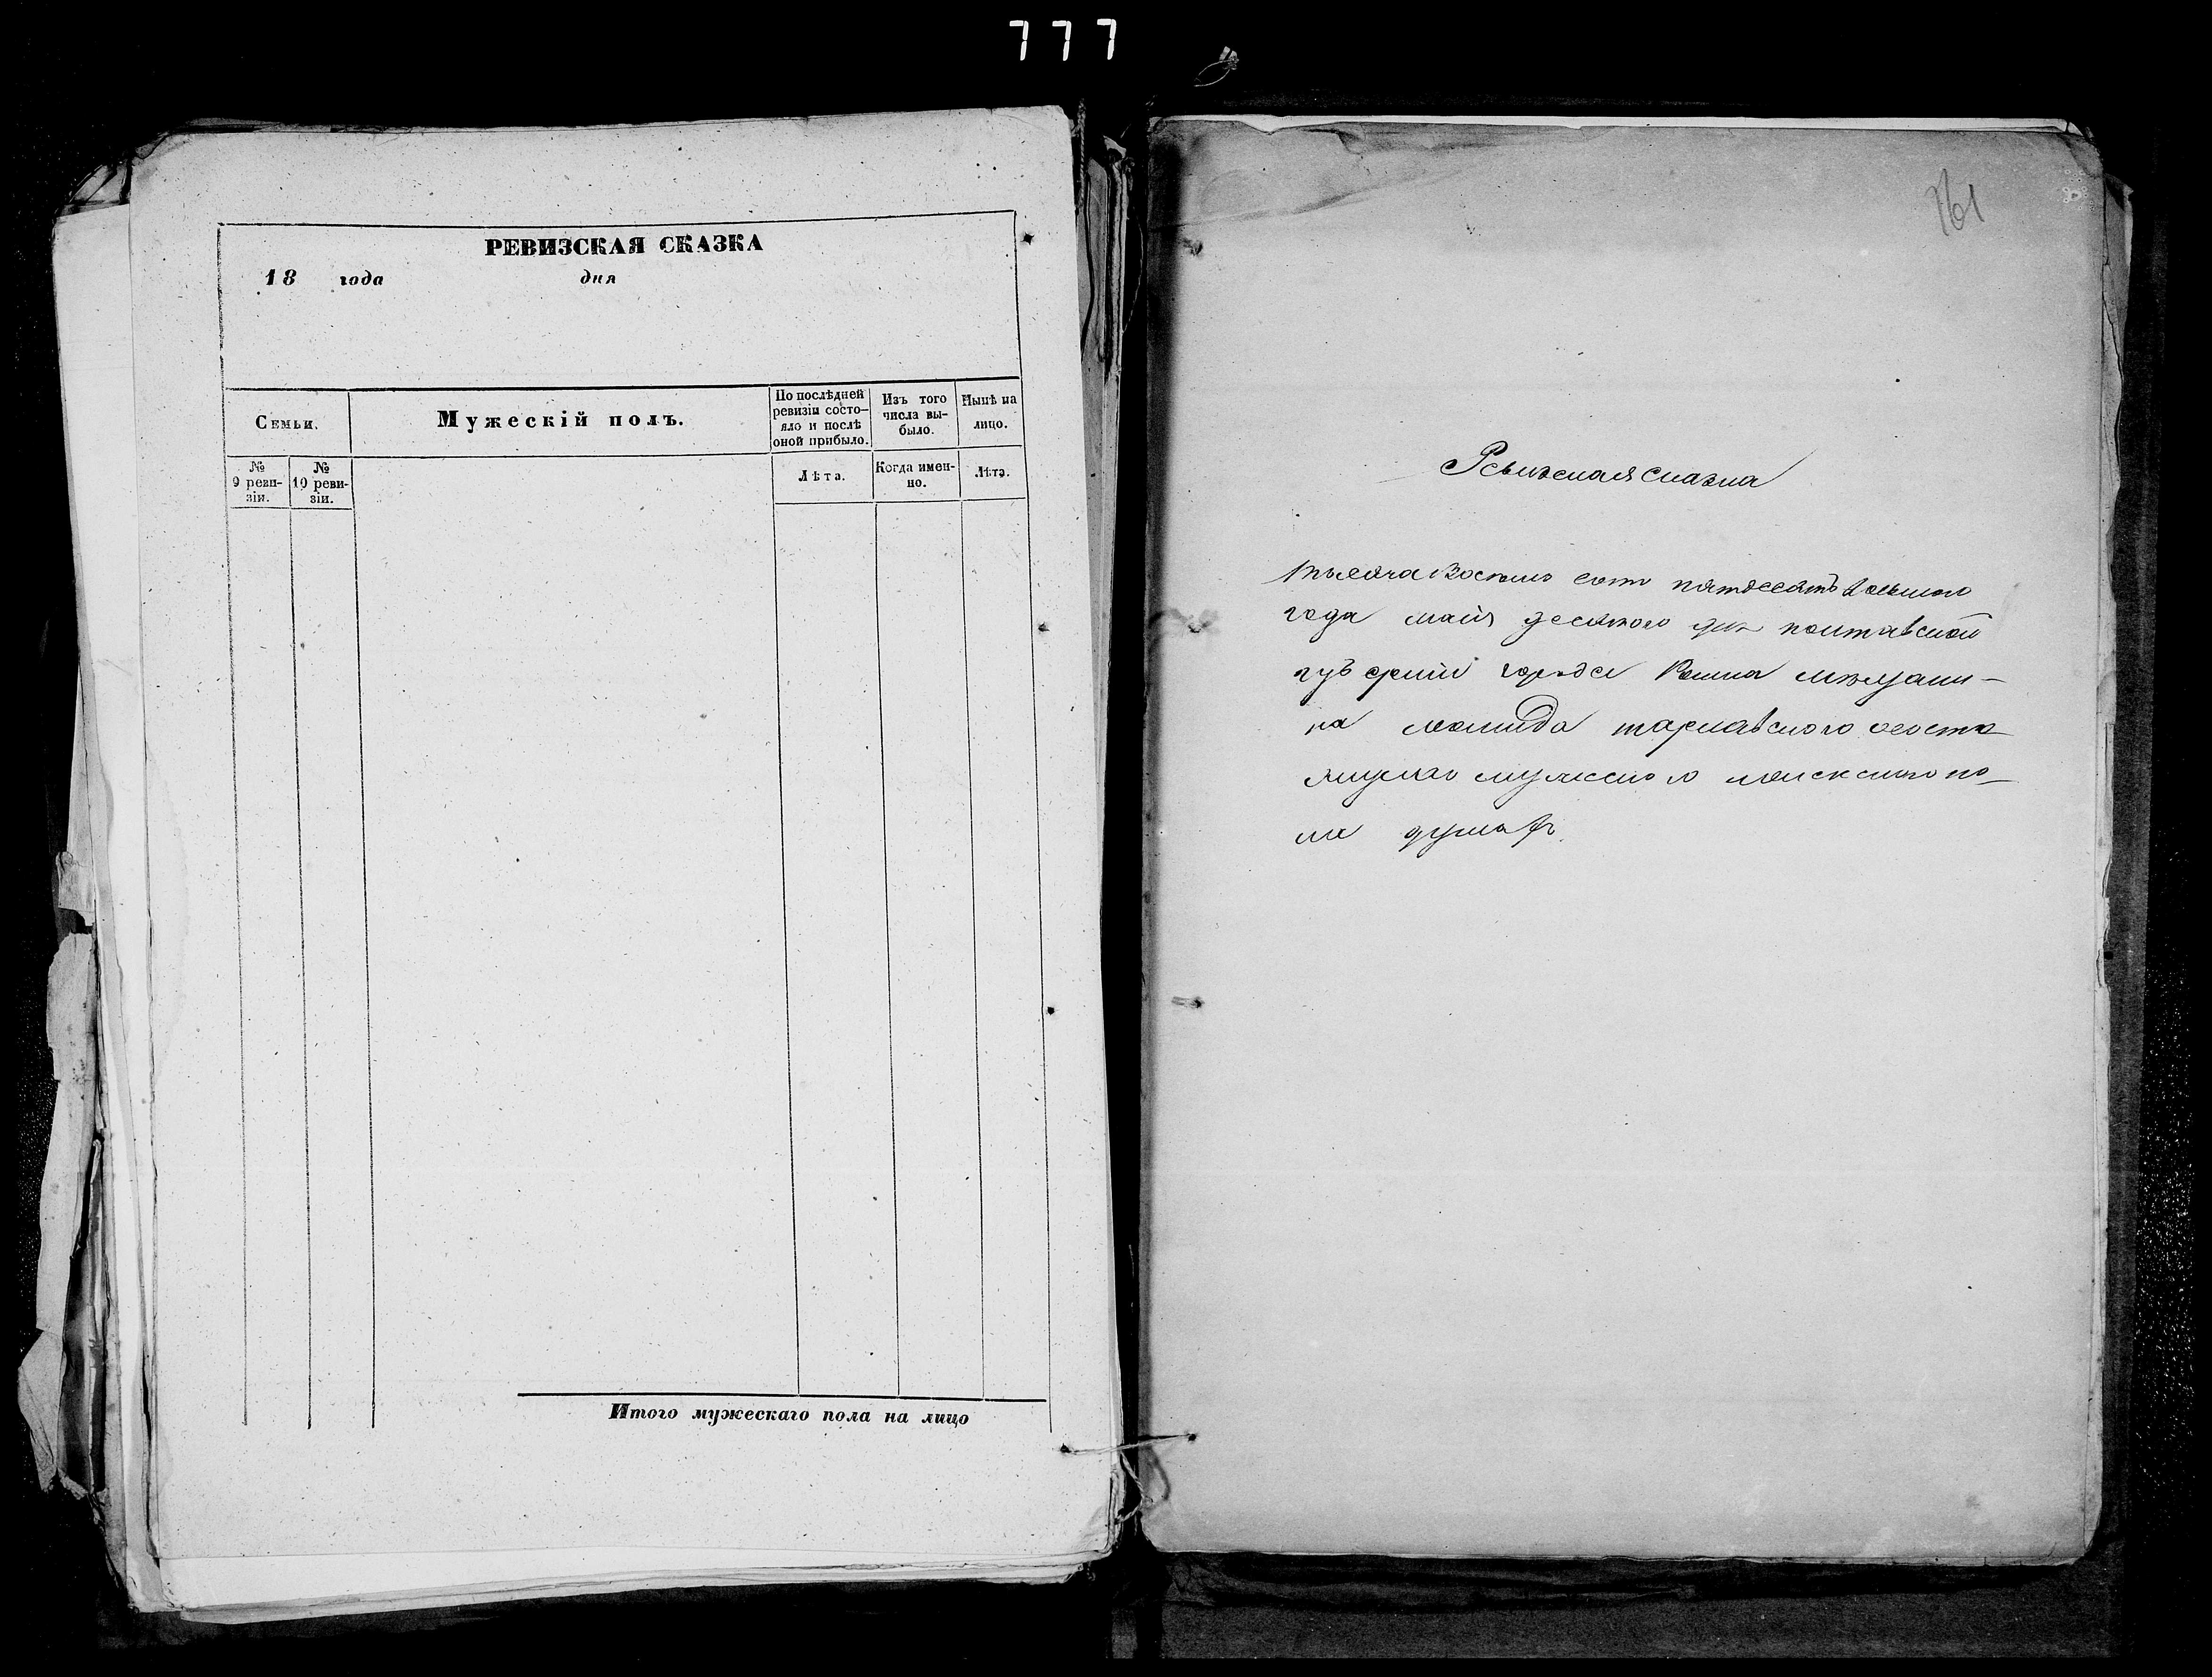 777
РЕВИЗСКАЯ СКАЗКА
18 года дня
Семьи.
Мужескій полъ.
По послѣдней ревизіи состо-
яло и послѣ оной прибыло.
Изъ того числа вы-
было.
Нынѣ на лицо.
№ 9 реви-
зіи.
№ 10 реви-
зіи.
Лѣта.
Когда имен-
но.
Лѣта.
Итого мужескаго пола на лицо
761
Ревизская Сказка
тысяча Восемь сотъ пятдесятъ восьмого
года мая десятого дня полтавской
губернии города Ромна мѣщани-
на тарнавского ососта
ящемъ мужеского женского по-
ла душахъ.